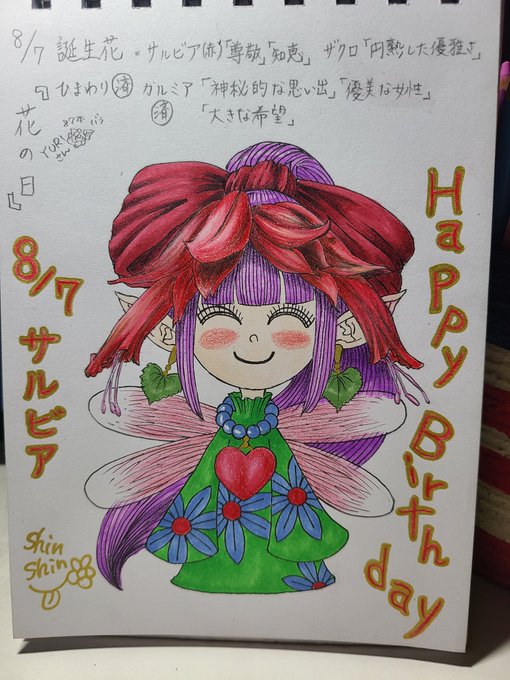 8/7 誕生花・サルビア(赤)「尊敬」「知恵」 ザクロ「円熟した優雅さ」
『花の日』
ひまわり㊮ カルミア「神秘的な思い出」「優美な女性」
「大きな希望」
YURIさん
8/7 サルビア
Happy Birthday
Shin
Shin